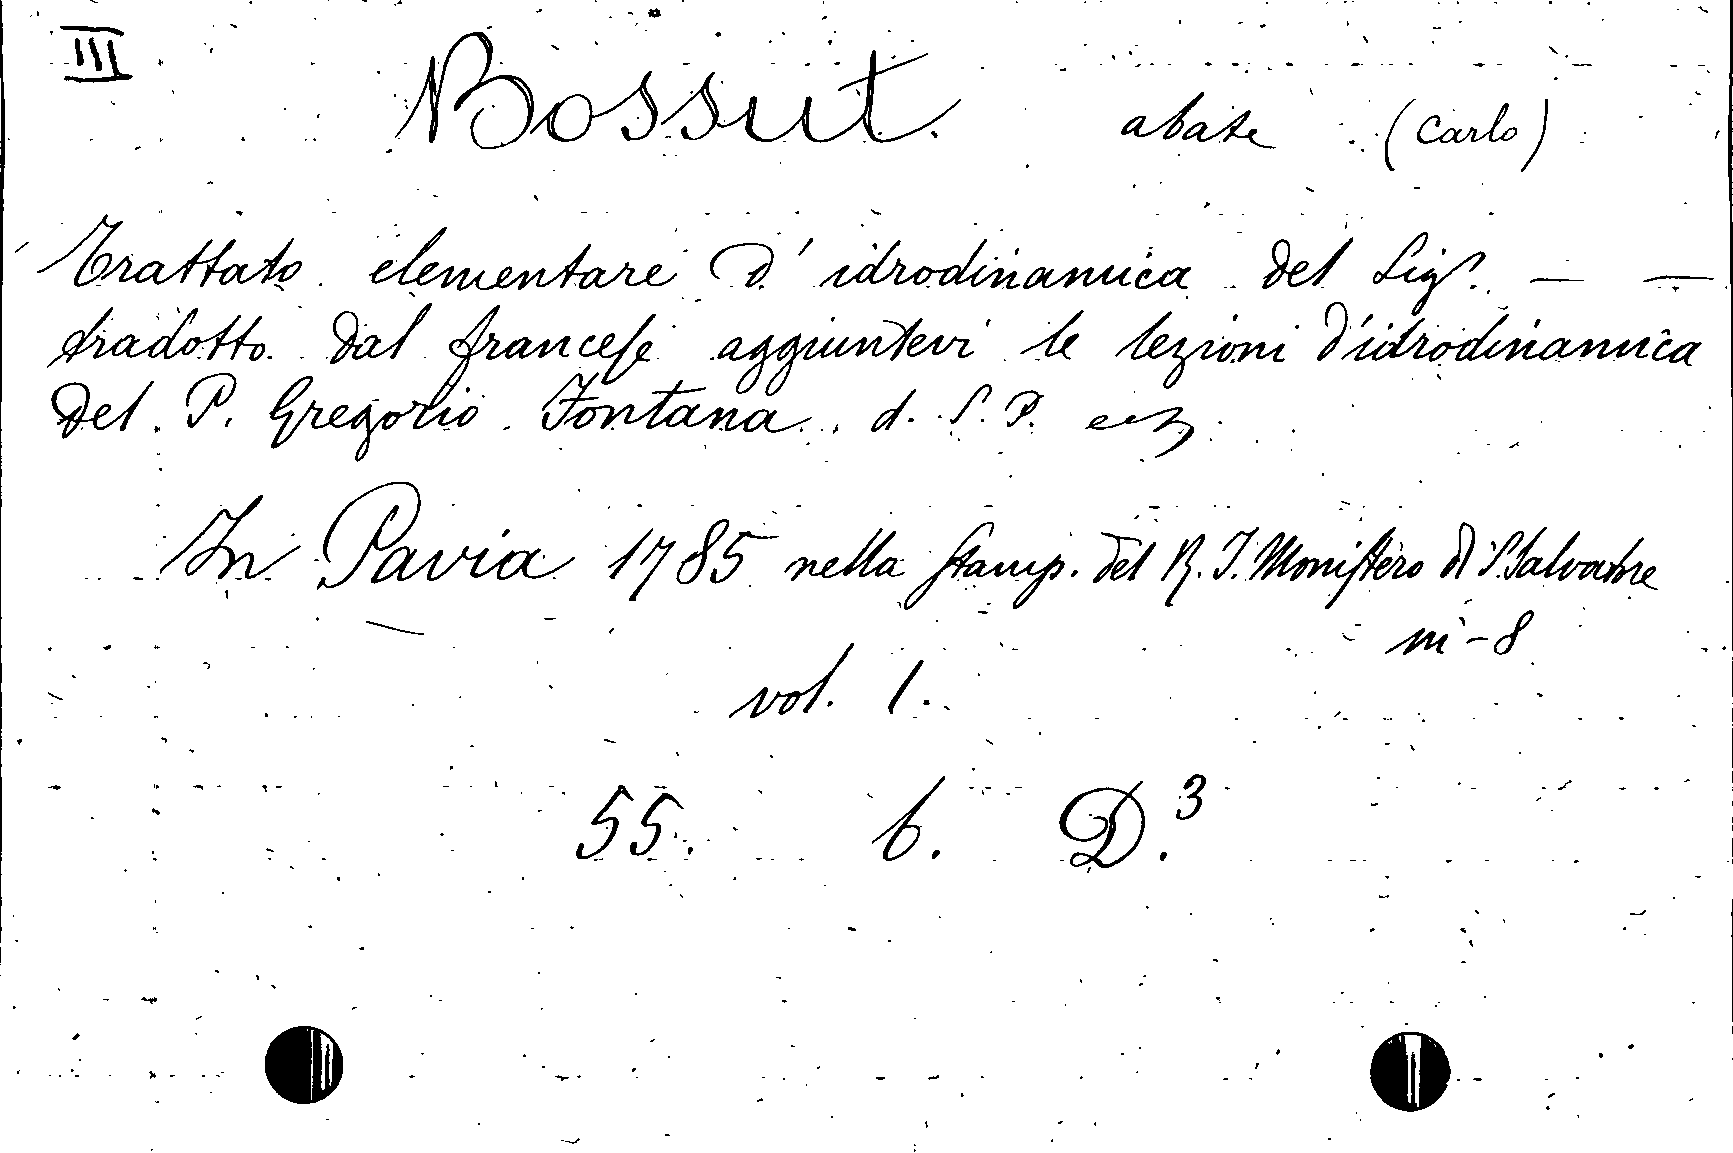 III
Bossut. abate (Carlo)
Trattato elementare d' idrodinamica del Sigr. — —
tradotto dal francese aggiuntevi le lezioni d'idrodinamica
del P. Gregorio Fontana d. S. P. ecc
In Pavia 1785 nella stamp. del R. I. Monistero di S. Salvatore
in-8
vol. 1.
55. b. D.³